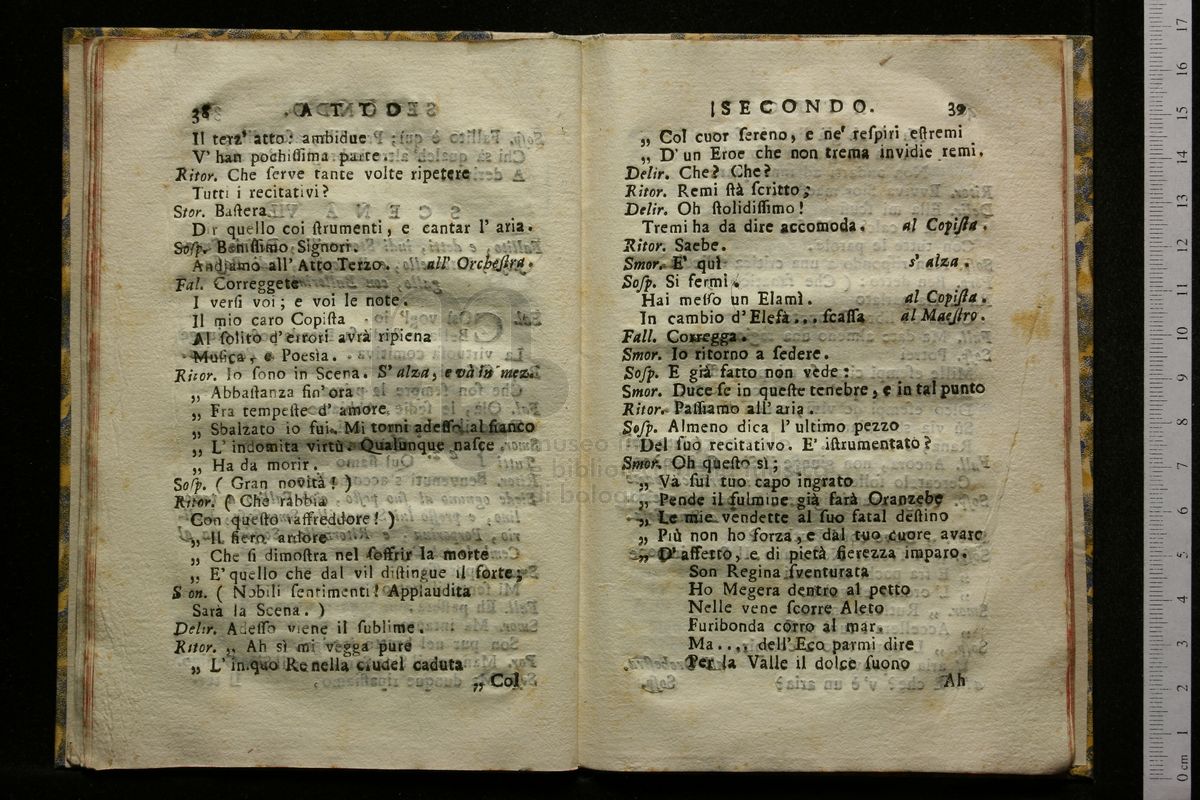 38 ATTO
Il terz' atto: ambidue
V' han pochiſſima parte.
Ritor. Che ſerve tante volte ripetere
Tutti i recitativi?
Stor. Baſtera
Dir quello coi ſtrumenti, e cantar l' aria.
Soſp. Beniſſimo Signori.
Andiamo all' Atto Terzo. all' Orcheſtra.
Fal. Correggete
I verſi voi; e voi le note.
Il mio caro Copiſta
Al ſolito d' errori avrà ripiena
Muſica, e Poesìa.
Ritor. Io ſono in Scena. S' alza, e và in mez.
„ Abbaſtanza fin' ora
„ Fra tempeſte d' amore
„ Sbalzato io fui. Mi torni adeſſo al fianco
„ L' indomita virtù. Qualunque naſce
„ Ha da morir.
Soſp. ( Gran novità! )
Ritor. ( Che rabbia
Con queſto raffreddore! )
„ Il fiero ardore
„ Che ſi dimoſtra nel ſoffrir la morte
„ E' quello che dal vil diſtingue il forte;
S on. ( Nobili ſentimenti! Applaudita
Sarà la Scena. )
Delir. Adeſſo viene il ſublime.
Ritor. „ Ah sì mi vegga pure
„ L' in.quo Re nella crudel caduta
„ Col
SECONDO. 39
„ Col cuor ſereno, e ne' reſpiri eſtremi
„ D' un Eroe che non trema invidie remi.
Delir. Che? Che?
Ritor. Remi ſtà ſcritto;
Delir. Oh ſtolidiſſimo!
Tremi ha da dire accomoda. al Copiſta.
Ritor. Saebe.
Smor. E' quì s' alza.
Soſp. Si fermi.
Hai meſſo un Elamì. al Copiſta.
In cambio d' Elefà... ſcaſſa al Maeſtro.
Fall. Corregga.
Smor. Io ritorno a ſedere.
Soſp. E già fatto non vède:
Smor. Duce ſe in queſte tenebre, e in tal punto
Ritor. Paſſiamo all' aria.
Soſp. Almeno dica l' ultimo pezzo
Del ſuo recitativo. E' iſtrumentato?
Smor. Oh queſto sì;
„ Va ſul tuo capo ingrato
„ Pende il fulmine già farà Oranzebe
„ Le mie vendette al ſuo fatal deſtino
„ Più non ho forza, e dal tuo cuore avaro
„ D' affetto, e di pietà fierezza imparo.
Son Regina ſventurata
Ho Megera dentro al petto
Nelle vene ſcorre Aleto
Furibonda corro al mar.
Ma.... dell' Eco parmi dire
Per la Valle il dolce ſuono
Ah